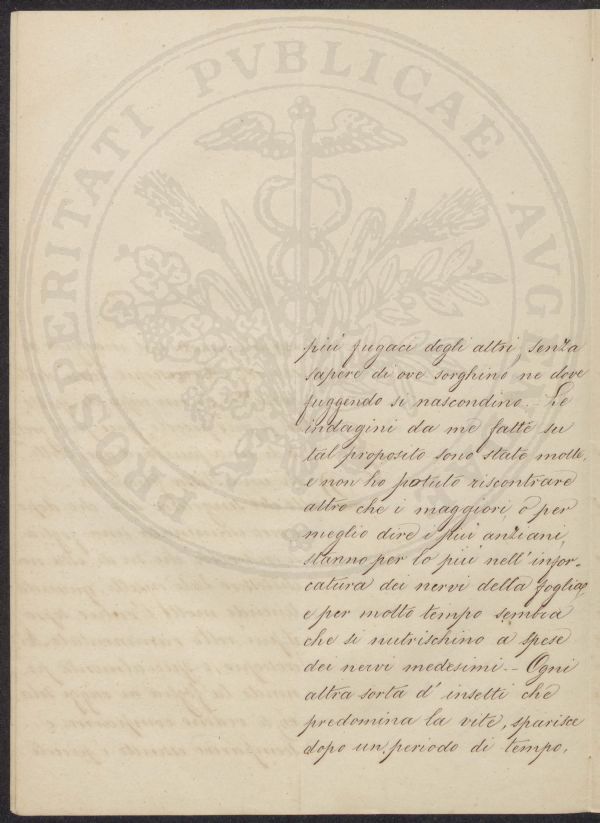 PROSPERITATI PVBLICAE AVG
più fugaci degli altri, senza
sapere di ove sorghino ne dove
fuggendo si nascondino. Le
indagini da me fatte su
tal proposito sono state molte,
e non ho potuto riscontrare
altro che i maggiori, o per
meglio dire i più anziani,
stanno per lo più nell'infor-
catura dei nervi della foglia,
e per molto tempo sembra
che si nutrischino a spese
dei nervi medesimi.- Ogni
altra sorta d'insetti che
predomina la vite, sparisce
dopo un periodo di tempo,